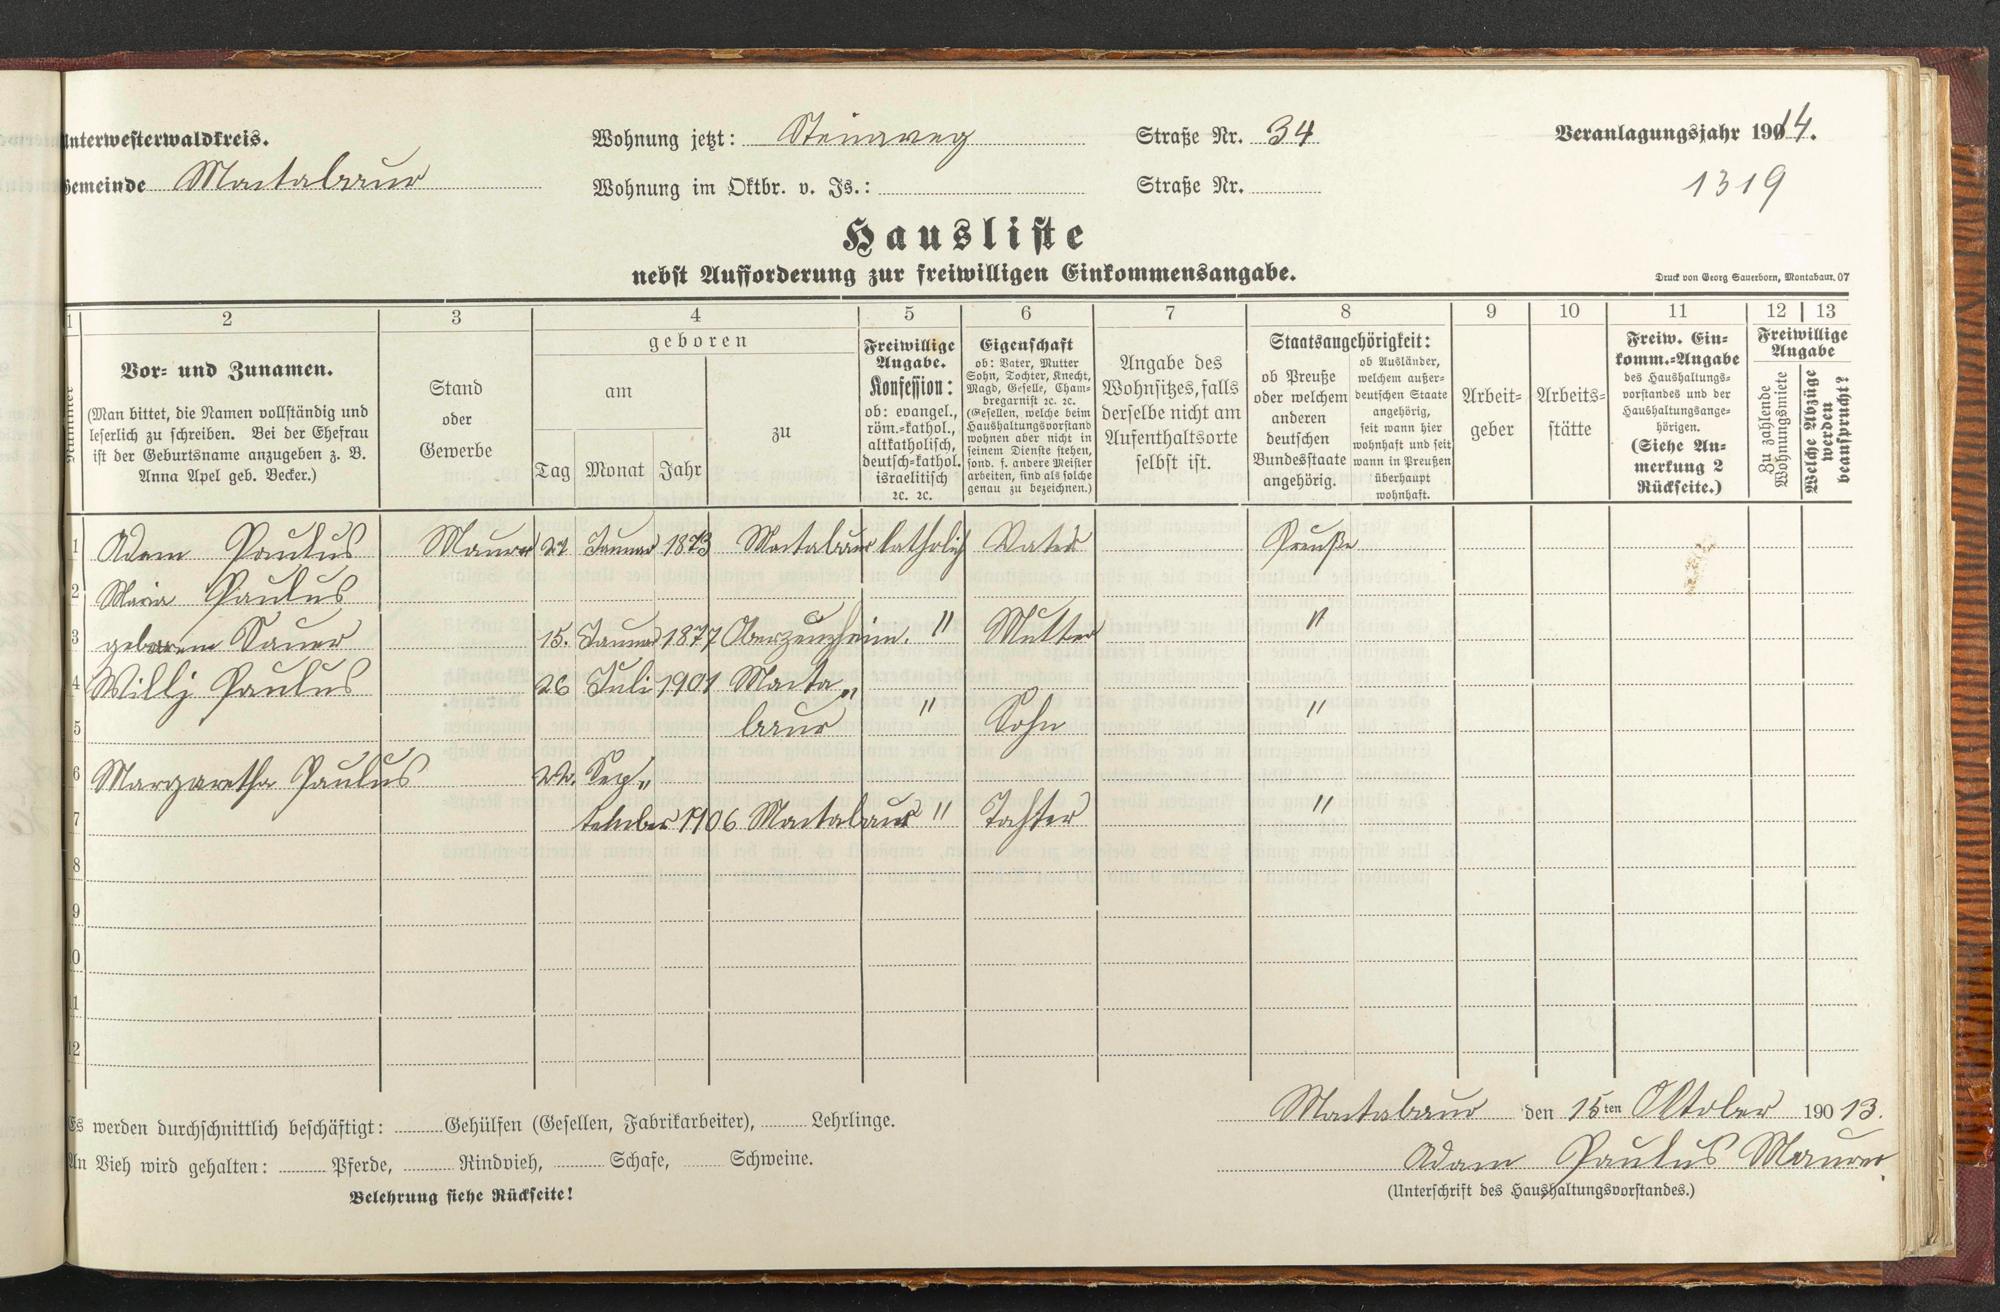 Unterwesterwaldkreis. Wohnung jetzt: Steinweg Straße Nr. 34 Veranlagungsjahr 1914.
Gemeinde Montabaur Wohnung im Oktbr. v. Js.: Straße Nr. 1319
Hausliste
nebst Aufforderung zur freiwilligen Einkommensangabe.
Druck von Georg Sauerborn, Montabaur. 07
1 2 3 4 5 6 7 8 9 10 11 12 13
Nummer
Vor- und Zunamen.
(Man bittet, die Namen vollständig und
leserlich zu schreiben. Bei der Ehefrau
ist der Geburtsname anzugeben z. B.
Anna Apel geb. Becker.)
Stand
oder
Gewerbe
geboren
am
Tag Monat Jahr
zu
Freiwillige
Angabe.
Konfession:
ob: evangel.,
röm.-kathol.,
altkatholisch,
deutsch-kathol.
israelitisch
ꝛc. ꝛc.
Eigenschaft
ob: Vater, Mutter
Sohn, Tochter, Knecht,
Magd, Geselle, Cham-
bregarnist ꝛc. ꝛc.
(Gesellen, welche beim
Haushaltungsvorstand
wohnen aber nicht in
seinem Dienste stehen,
sond. f. andere Meister
arbeiten, sind als solche
genau zu bezeichnen.)
Angabe des
Wohnsitzes, falls
derselbe nicht am
Aufenthaltsorte
selbst ist.
Staatsangehörigkeit:
ob Preuße
oder welchem
anderen
deutschen
Bundesstaate
angehörig.
ob Ausländer,
welchem außer-
deutschen Staate
angehörig,
seit wann hier
wohnhaft und seit
wann in Preußen
überhaupt
wohnhaft.
Arbeit-
geber
Arbeits-
stätte
Freiw. Ein-
komm.-Angabe
des Haushaltungs-
vorstandes und der
Haushaltungsange-
hörigen.
(Siehe An-
merkung 2
Rückseite.)
Freiwillige
Angabe
Zu zahlende
Wohnungsmiete
Welche Abzüge
werden
beansprucht?
1 Adam Paulus Maurer 27 Januar 1873 Montabaur katholisch Vater Preuße
2 Maria Paulus
3 geborene Sauer 15. Januar 1877 Oberzeuzheim. " Mutter "
4 Willj Paulus 26 Juli 1901 Monta„
5 baur " Sohn "
6 Margaretha Paulus 22. Sep„
7 tember 1906 Montabaur " Tochter "
8
9
10
11
12
Es werden durchschnittlich beschäftigt: Gehülfen (Gesellen, Fabrikarbeiter), Lehrlinge.
An Vieh wird gehalten: Pferde, Rindvieh, Schafe, Schweine.
Belehrung siehe Rückseite!
Montabaur den 15ten Oktober 190 13.
Adam Paulus Maurer.
(Unterschrift des Haushaltungsvorstandes.)